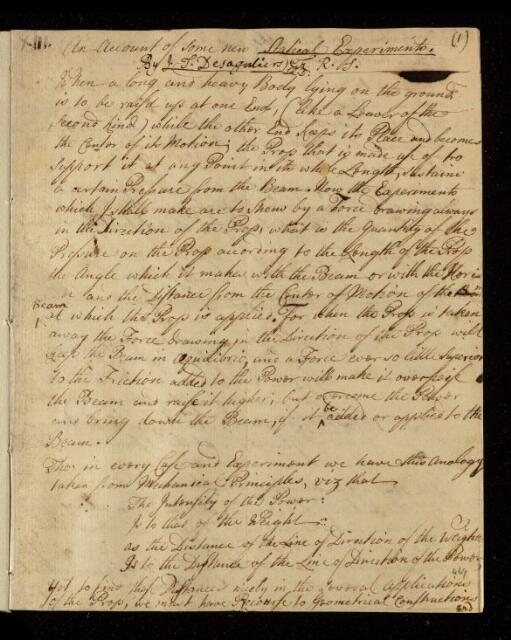 (1)
An Account of some new Statical Experiments.
By J. T. Desaguliers F. R. S.
When a long and heavy Body lying on the ground
is to be rais'd up at one End, (like a Leaver of the
second kind) while the other End keeps its Place and becomes
the Center of its Motion; the Prop that is made use of to
support it at any Point in the whole Length, sustains
a certain Pressure from the Beam. Now the Experiments
which I shall make are to shew by a Force drawing always
in the Direction of the Prop, what is the Quantity of the
Pressure on the Prop according to the Length of the Prop
the Angle which it makes with the Beam or with the Hori
and the Distance from the Center of Motion of the
Beam
at which the Prop is applied. For when the Prop is taken
away the Force drawing in the Direction of the Prop will
keep the Beam in Æquilibrio, and a Force ever so little superior
to the Friction added to the Power will make it overpoise
the Beam and raise it higher; but overcome the Power
and bring down the Beam, if it be added or applied to the
Beam.
Tho' in every Case and Experiment we have this Analogy
taken from Mechanical Principles, viz that
The Intensity of the Power:
Is to that of the Weight ::
as the Distance of the Line of Direction of the Weight:
Is to the Distance of the Line of Direction of the Power
Yet to find these Distances nicely in the several Applications
of the Prop, we must have Recourse to Geometrical Constructions
and